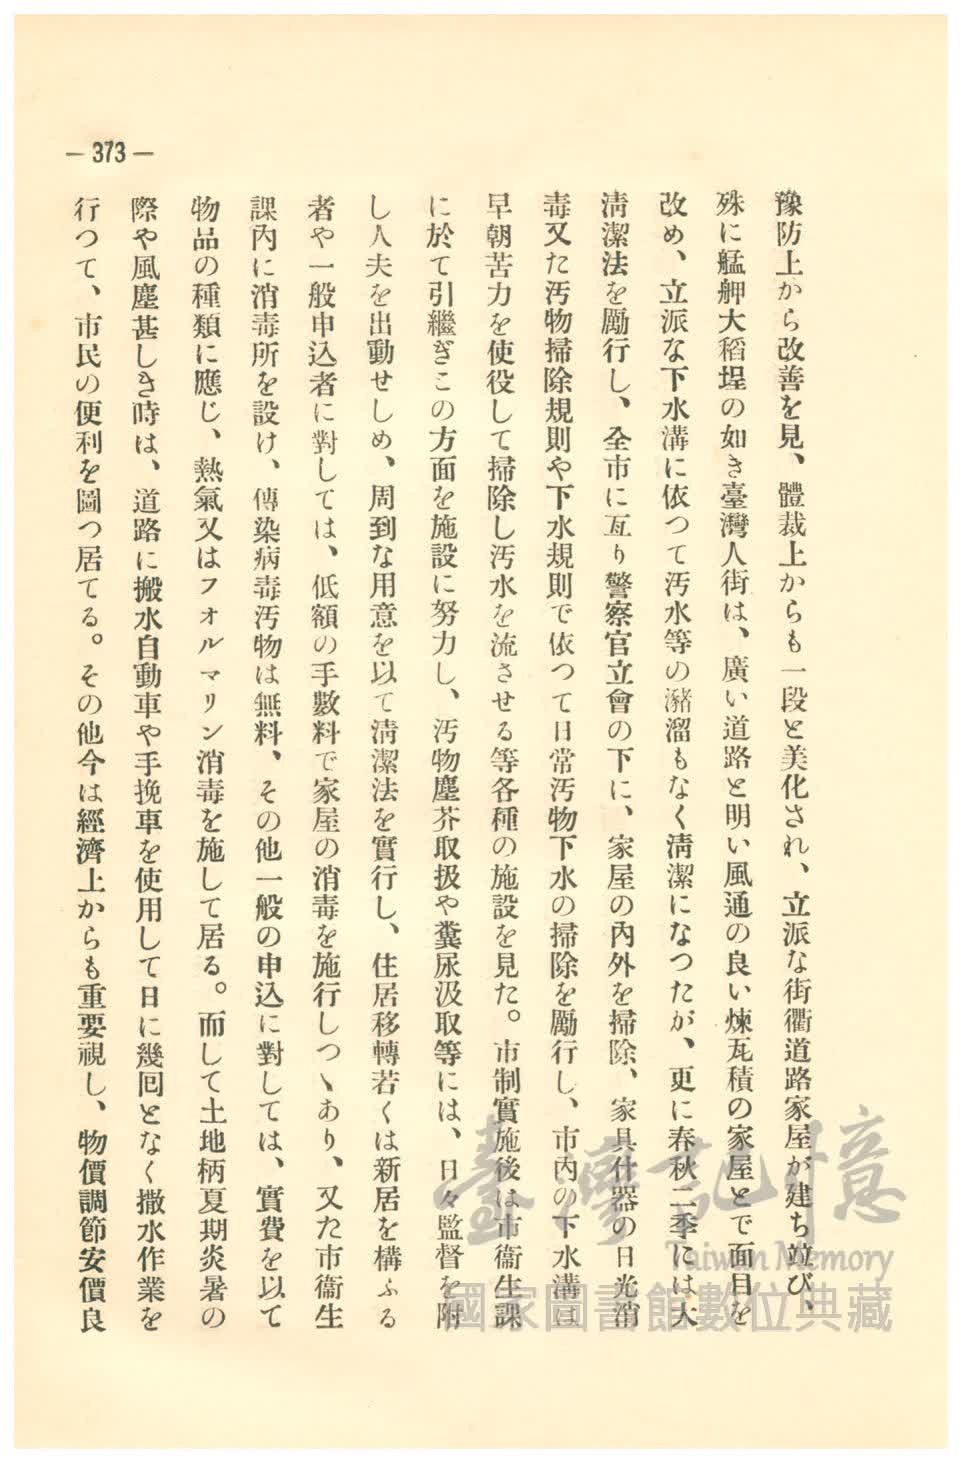 — 373 —
豫防上から改善を見、體裁上からも一段と美化され、立派な街衢道路家屋が建ち竝び、
殊に艋舺大稻埕の如き臺灣人街は、廣い道路と明い風通の良い煉瓦積の家屋とで面目を
改め、立派な下水溝に依つて汚水等の瀦溜もなく淸潔になつたが、更に春秋二季には大
淸潔法を勵行し、全市に亙り警察官立會の下に、家屋の內外を掃除、家具什器の日光消
毒又た汚物掃除規則や下水規則で依つて日常汚物下水の掃除を勵行し、市內の下水溝は
早朝苦力を使役して掃除し汚水を流させる等各種の施設を見た。市制實施後は市衞生課
に於て引繼ぎこの方面を施設に努力し、汚物塵芥取扱や糞尿汲取等には、日々監督を附
し人夫を出動せしめ、周到な用意を以て淸潔法を實行し、住居移轉若くは新居を構ふる
者や一般申込者に對しては、低額の手數料で家屋の消毒を施行しつゝあり、又た市衞生
課內に消毒所を設け、傳染病毒汚物は無料、その他一般の申込に對しては、實費を以て
物品の種類に應じ、熱氣又はフオルマリン消毒を施して居る。而して土地柄夏期炎暑の
際や風塵甚しき時は、道路に搬水自動車や手挽車を使用して日に幾囘となく撒水作業を
行つて、市民の便利を圖つ居てる。その他今は經濟上からも重要視し、物價調節安價良
臺灣記憶
Taiwan Memory
國家圖書館數位典藏